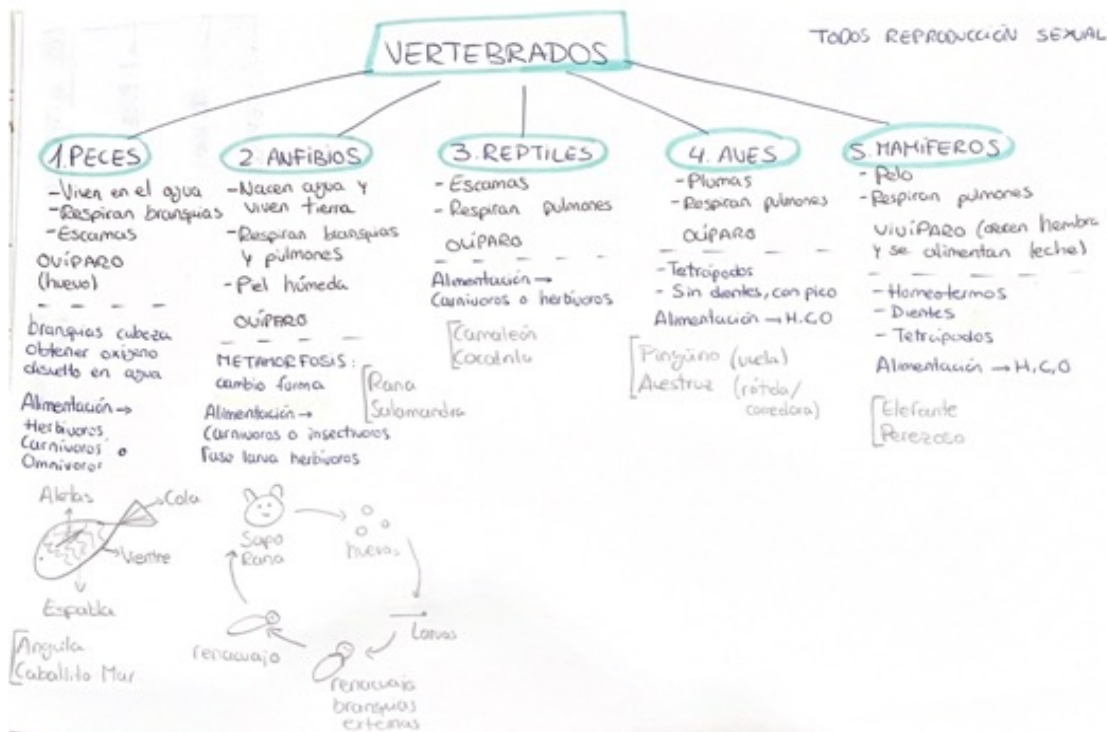 VERTEBRADOS
TODOS REPRODUCCIÓN SEXUAL
1. PECES
- Viven en el agua
- Respiran branquias
- Escamas
OVÍPARO
(huevo)
branquias cabeza
obtener oxígeno
disuelto en agua
Alimentación →
Herbívoros
Carnívoros o
Omnívoros
Aletas
Cola
Vientre
Espalda
Anguila
Caballito Mar
2. ANFIBIOS
- Nacen agua y
viven tierra
- Respiran branquias
y pulmones
- Piel húmeda
OVÍPARO
METAMORFOSIS:
cambio forma
Rana
Salamandra
Alimentación →
Carnívoros o insectívoros
Fase larva herbívoros
Sapo
Rana
huevos
Larvas
renacuajo
branquias
externas
renacuajo
3. REPTILES
- Escamas
- Respiran pulmones
OVÍPARO
Alimentación →
Carnívoros o herbívoros
Camaleón
Cocodrilo
4. AVES
- Plumas
- Respiran pulmones
OVÍPARO
- Tetrápodos
- Sin dientes, con pico
Alimentación → H,C,O
Pingüino (vuela)
Avestruz (rátida/
corredora)
5. MAMÍFEROS
- Pelo
- Respiran pulmones
VIVÍPARO (crecen hembra
y se alimentan leche)
- Homeotermos
- Dientes
- Tetrápodos
Alimentación → H,C,O
Elefante
Perezoso